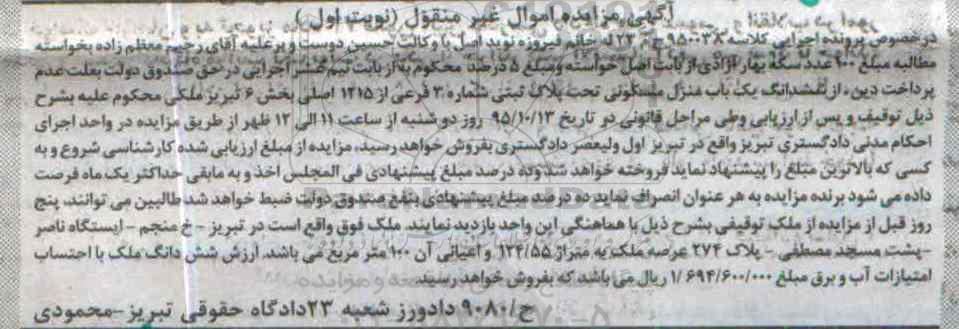 آگهی مزایده اموال غیر منقول (نوبت اول)
درخصوص پرونده اجرایی کلاسه ۹۵۰۰۳۸ ج م ۲۳ له خانم فیروزه نوید اصل با وکالت حسین دوست و بر علیه آقای رحیم معظم زاده بخواسته
مطالبه مبلغ ۹۰۰ عدد سکه بهار آزادی از بابت اصل خواسته و مبلغ ۵ درصد محکوم به از بابت نیم عشر اجرایی در حق صندوق دولت بعلت عدم
پرداخت دین، از ششدانگ یک باب منزل مسکونی تحت پلاک ثبتی شماره ۳ فرعی از ۱۲۱۵ اصلی بخش ۶ تبریز ملکی محکوم علیه بشرح
ذیل توقیف و پس از ارزیابی وطی مراحل قانونی در تاریخ ۹۵/۱۰/۱۳ روز دو شنبه از ساعت ۱۱ الی ۱۲ ظهر از طریق مزایده در واحد اجرای
احکام مدنی دادگستری تبریز واقع در تبریز اول ولیعصر دادگستری بفروش خواهد رسید، مزایده از مبلغ ارزیابی شده کارشناسی شروع و به
کسی که بالاترین مبلغ را پیشنهاد نماید فروخته خواهد شد وده درصد مبلغ پیشنهادی فی المجلس اخذ و به مابقی حداکثر یک ماه فرصت
داده می شود برنده مزایده به هر عنوان انصراف نماید ده درصد مبلغ پیشنهادی بنفع صندوق دولت ضبط خواهد شد طالبین می توانند، پنج
روز قبل از مزایده از ملک توقیفی بشرح ذیل با هماهنگی این واحد بازدید نمایند. ملک فوق واقع است در تبریز - خ منجم - ایستگاه ناصر
-پشت مسجد مصطفی - پلاک ۲۷۴ عرصه ملک به متراژ ۱۲۲/۵۵ و اعیانی آن ۱۰۰ متر مربع می باشد. ارزش شش دانگ ملک با احتساب
امتیازات آب و برق مبلغ ۱/۶۹۴/۶۰۰/۰۰۰ ریال می باشد که بفروش خواهد رسید.
ح/۹۰۸۰ دادورز شعبه ۲۳ دادگاه حقوقی تبریز-محمودی